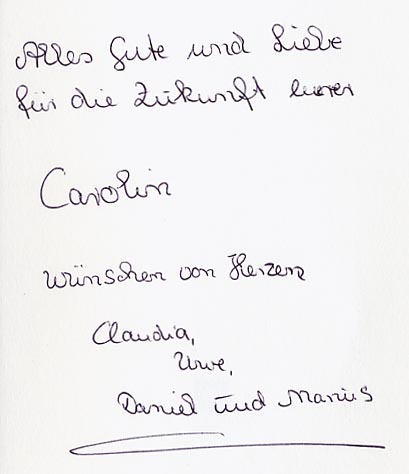 Alles Gute und Liebe
für die Zukunft eurer
Carolin
wünschen von Herzen
Claudia,
Uwe,
Daniel und Marius